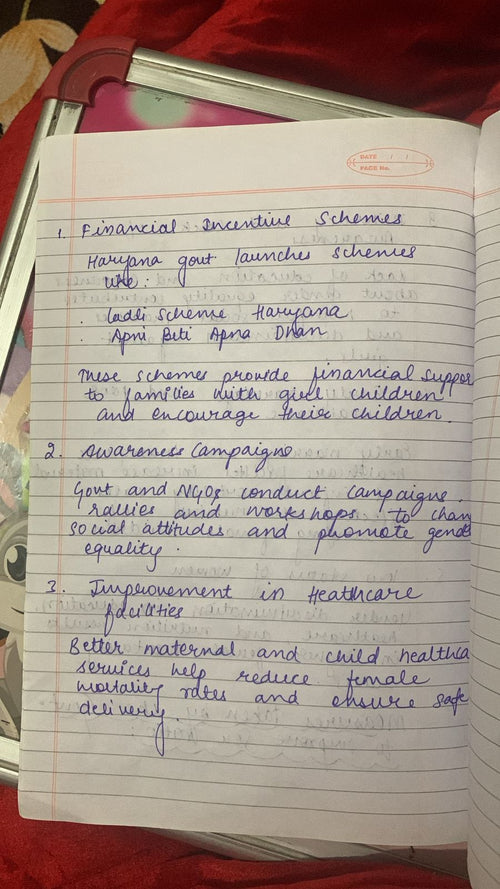 DATE / /
PAGE No.
1. Financial Incentive Schemes
Haryana govt launches schemes
like:
. Ladli Scheme Haryana
. Apni Beti Apna Dhan
These schemes provide financial suppor
to families with girl children
and encourage their children.
2. Awareness Campaigns
Govt and NGOs conduct campaigns.
rallies and workshops to chan
social attitudes and promote gende
equality.
3. Improvement in Healthcare
facilities
Better maternal and child healthca
services help reduce female
mortality rates and ensure safe
delivery.